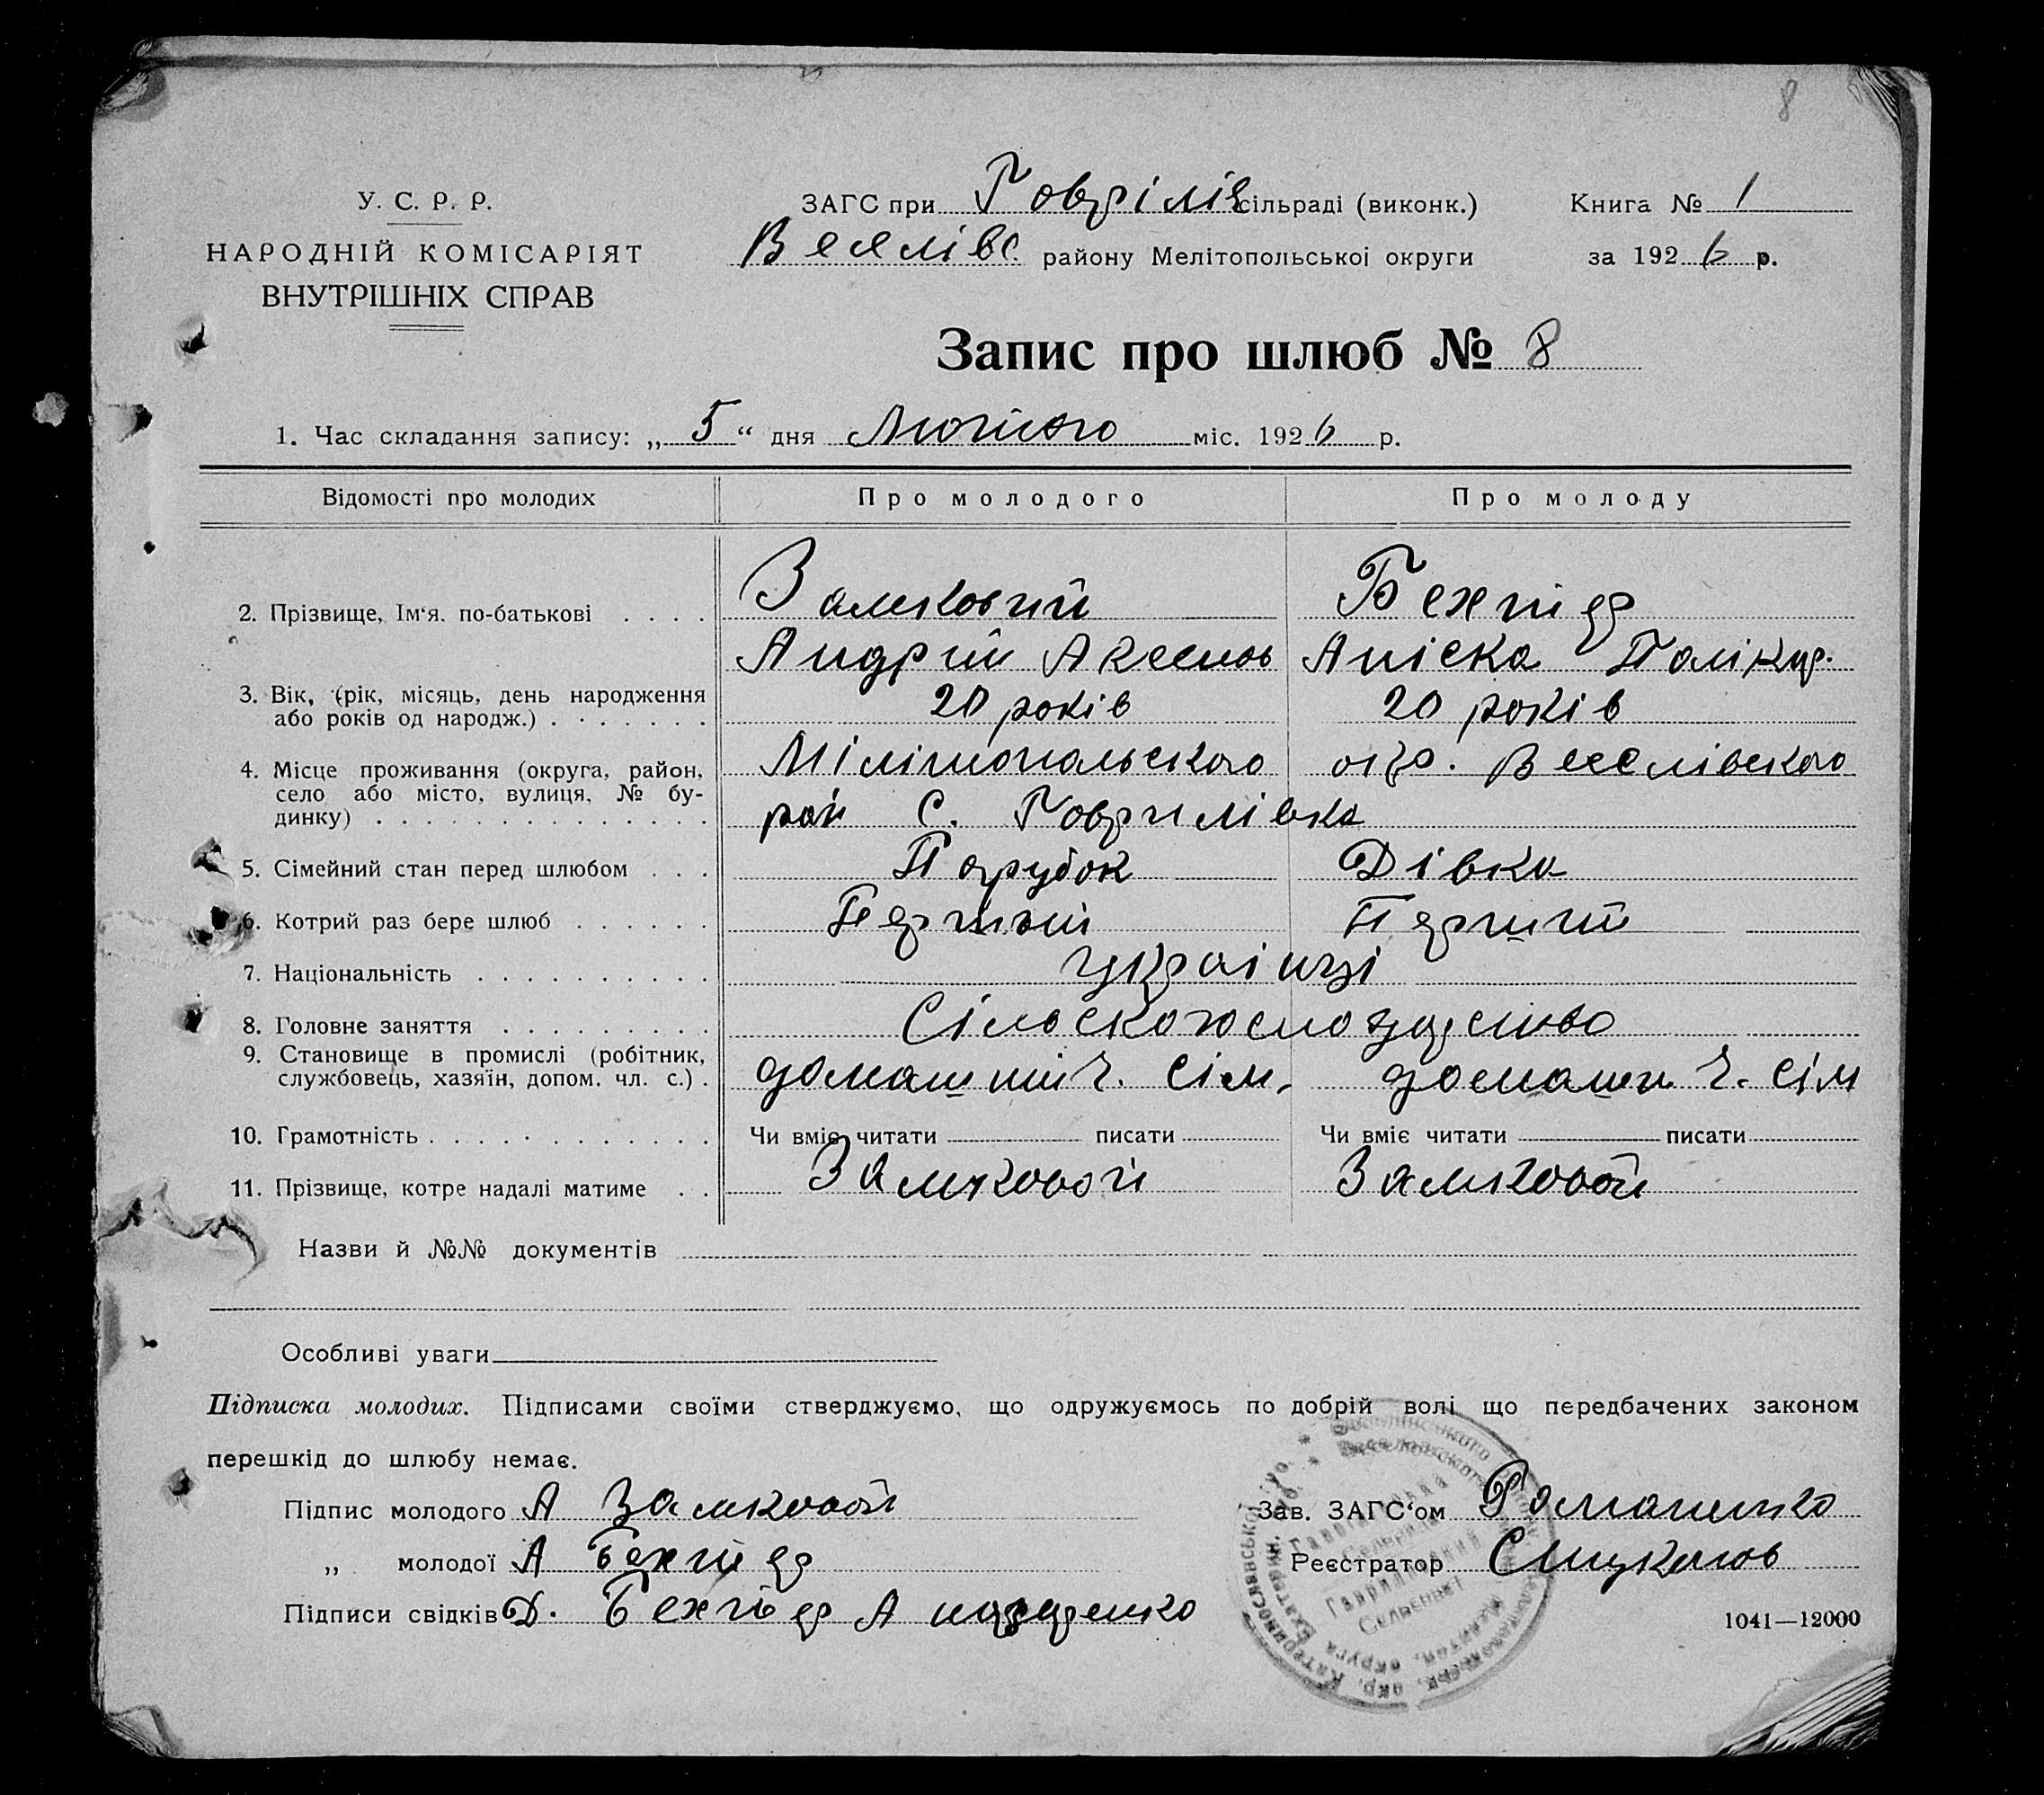 8
У. С. Р. Р.
НАРОДНІЙ КОМІСАРІЯТ
ВНУТРІШНІХ СПРАВ
ЗАГС при Говрілів сільраді (виконк.)
Веселівс. району Мелітопольської округи
Книга № 1
за 1926 р.
Запис про шлюб № 8
1. Час складання запису: „ 5 “ дня Лютого міс. 1926 р.
Відомості про молодих Про молодого Про молоду
2. Прізвище, Ім‘я. по-батькові . . . . Замковий Бехтір
Андрій Аксенов Аніска Полікар.
3. Вік, (рік, місяць, день народження
або років од народж.) . . . . . . . 20 років 20 років
4. Місце проживання (округа, район,
село або місто, вулиця, № бу-
динку) . . . . . . . . . . . . . .
Мілітопольского окр. Веселівского
рай С. Говрилівка
5. Сімейний стан перед шлюбом . . . Парубок Дівка
6. Котрий раз бере шлюб . . . . . . Перший Перший
7. Національність . . . . . . . . . . українці
8. Головне заняття . . . . . . . . . Сільскогосподарство
9. Становище в промислі (робітник,
службовець, хазяїн, допом. чл. с.) . домашній ч. сім. домашн ч. сім
10. Грамотність . . . . . . . . . . . . Чи вміє читати писати Чи вміє читати писати
11. Прізвище, котре надалі матиме . . Замковой Замковой
Назви й №№ документів
Особливі уваги
Підписка молодих. Підписами своїми стверджуємо, що одружуємось по добрій волі що передбачених законом
перешкід до шлюбу немає.
Підпис молодого А Замковой
„ молодої А Бехтір
Підписи свідків Д. Бехтір А
Зав. ЗАГС‘ом Романенко
Реєстратор
1041—12000